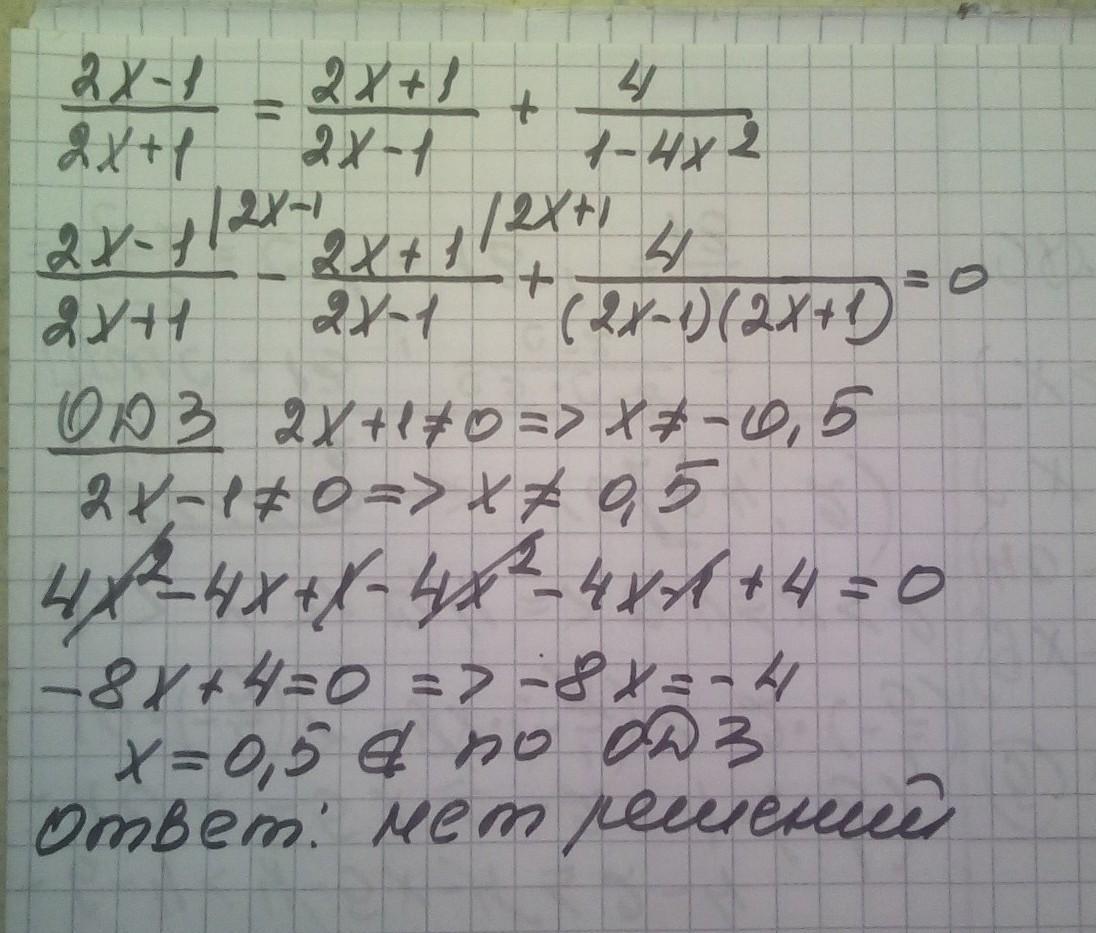 (2x-1)/(2x+1) = (2x+1)/(2x-1) + 4/(1-4x²)
(2x-1)/(2x+1) |2x-1 - (2x+1)/(2x-1) |2x+1 + 4/((2x-1)(2x+1)) = 0
ОДЗ 2x+1≠0 => x≠-0,5
2x-1≠0 => x≠0,5
4x²-4x+1-4x²-4x-1+4=0
-8x+4=0 => -8x=-4
x=0,5 ∉ по ОДЗ
Ответ: нет решений